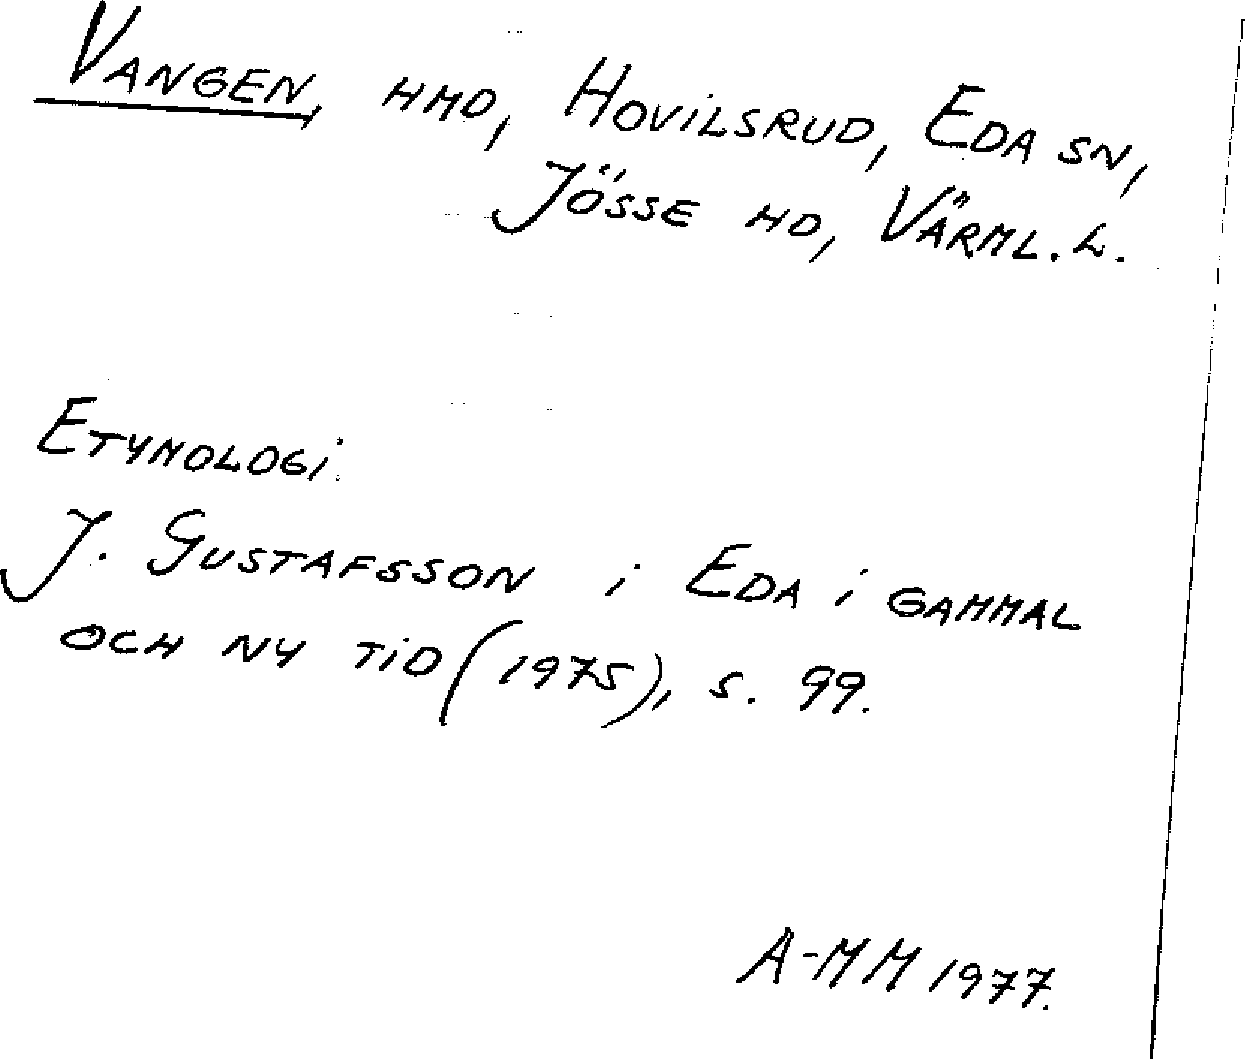 VANGEN, HMD, HOVILSRUD, EDA SN,
JÖSSE HD, VÄRML. L.
ETYMOLOGI.
J. GUSTAFSSON i EDA i GAMMAL
OCH NY TID (1975), S. 99.
A-MM 1977.